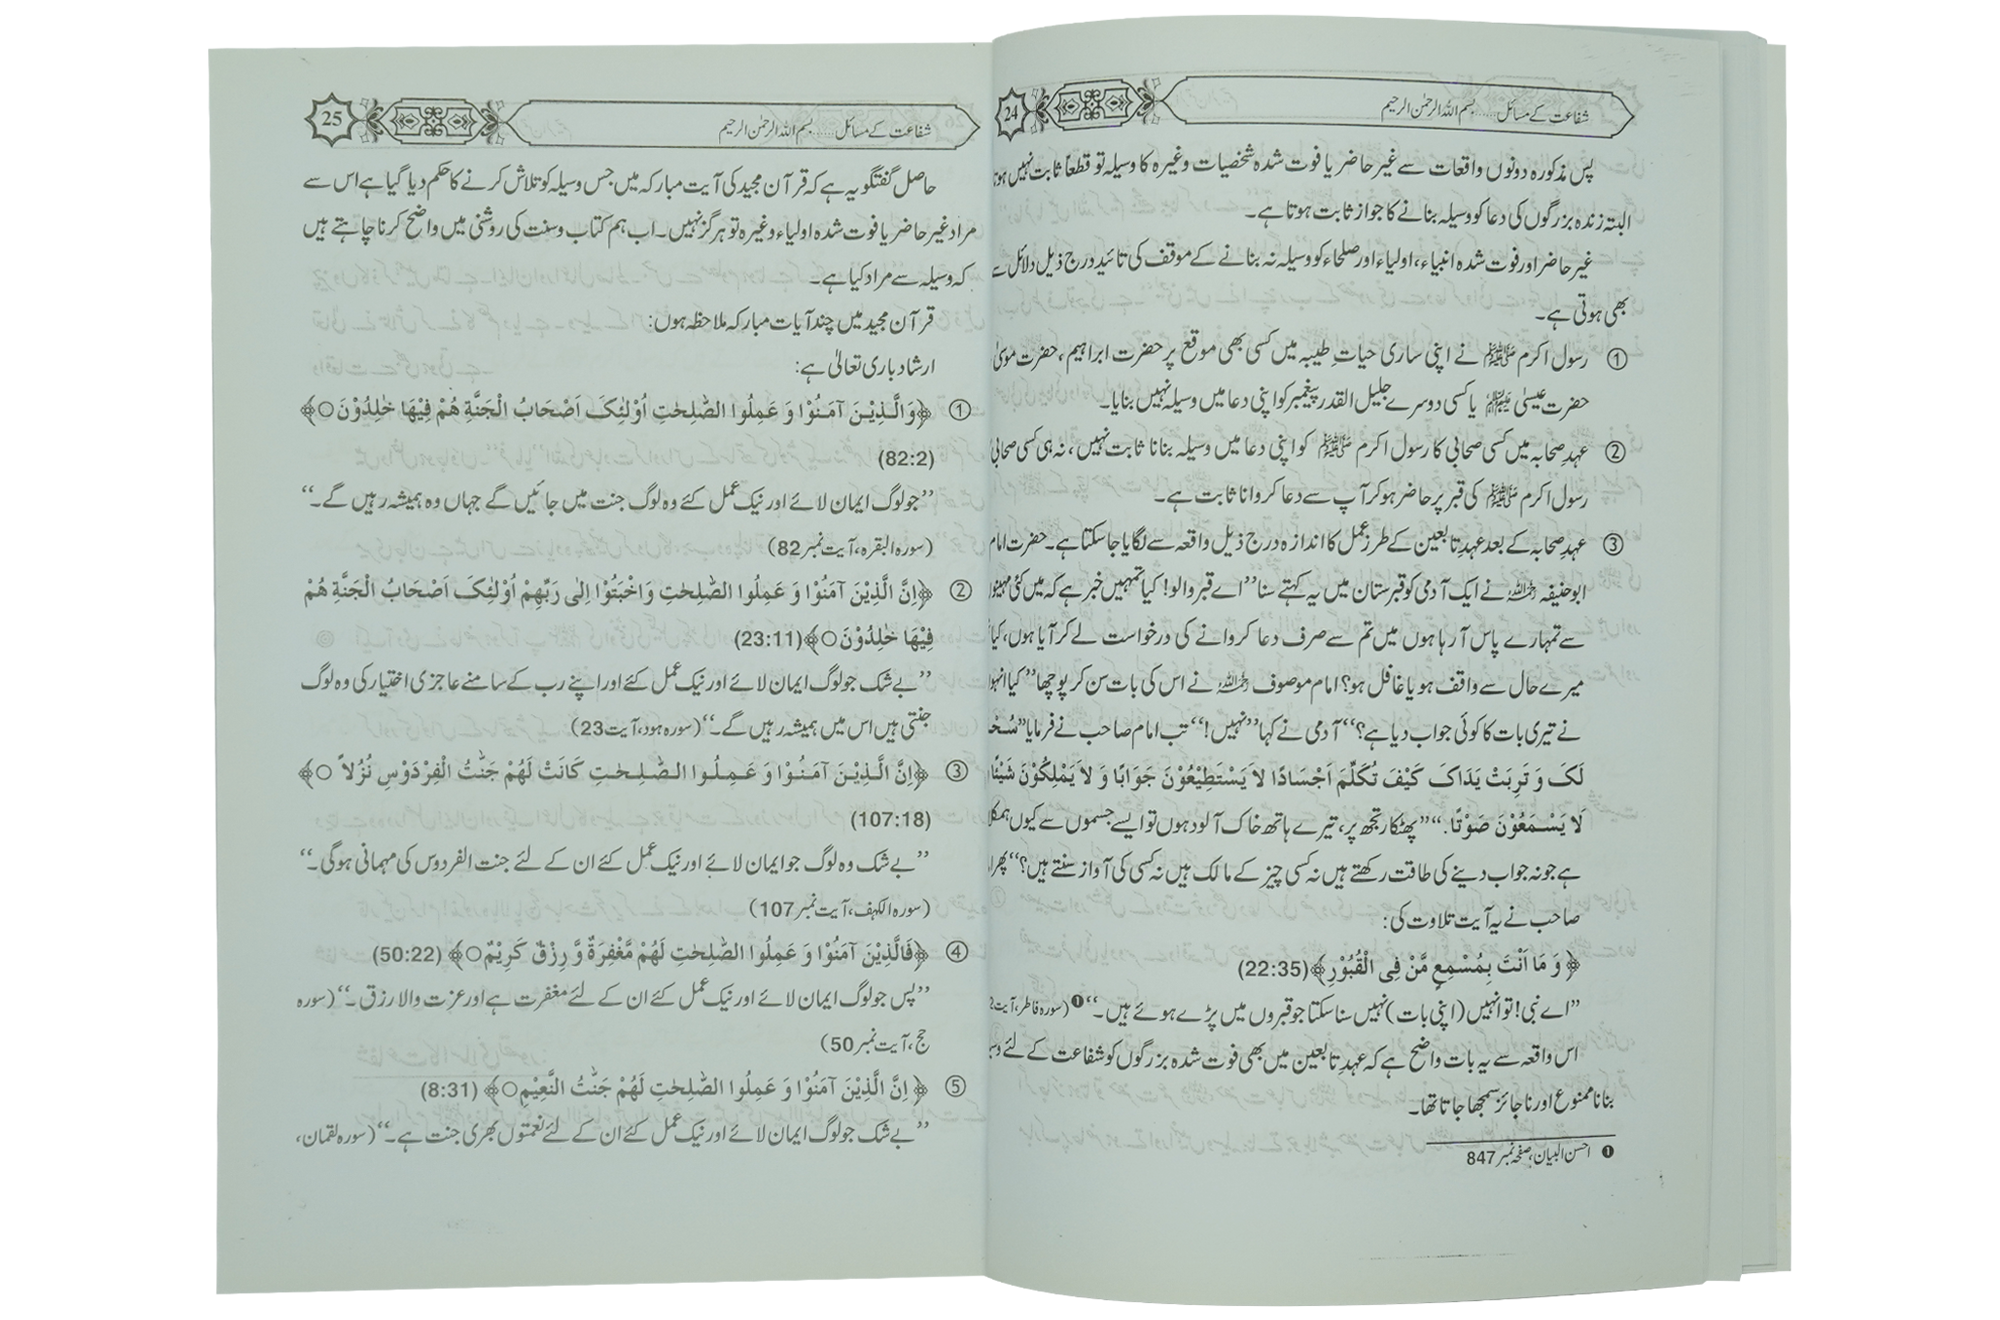 24
شفاعت کے مسائل......بسم اللہ الرحمٰن الرحیم
پس مذکورہ دونوں واقعات سے غیر حاضر یا فوت شدہ شخصیات وغیرہ کا وسیلہ تو قطعاً ثابت نہیں ہوتا
البتہ زندہ بزرگوں کی دعا کو وسیلہ بنانے کا جواز ثابت ہوتا ہے۔
غیر حاضر اور فوت شدہ انبیاء، اولیاء اور صلحاء کو وسیلہ نہ بنانے کے موقف کی تائید درج ذیل دلائل سے
بھی ہوتی ہے۔
① رسول اکرم ﷺ نے اپنی ساری حیاتِ طیبہ میں کسی بھی موقع پر حضرت ابراہیم، حضرت موسیٰ
حضرت عیسیٰ یا کسی دوسرے جلیل القدر پیغمبر کو اپنی دعا میں وسیلہ نہیں بنایا۔
② عہدِ صحابہ میں کسی صحابی کا رسول اکرم ﷺ کو اپنی دعا میں وسیلہ بنانا ثابت نہیں، نہ ہی کسی صحابی
رسول اکرم ﷺ کی قبر پر حاضر ہو کر آپ سے دعا کروانا ثابت ہے۔
③ عہدِ صحابہ کے بعد عہدِ تابعین کے طرزِ عمل کا اندازہ درج ذیل واقعہ سے لگایا جا سکتا ہے۔ حضرت امام
ابو حنیفہ رحمہ اللہ نے ایک آدمی کو قبرستان میں یہ کہتے سنا ’’اے قبر والو! کیا تمہیں خبر ہے کہ میں کئی
سے تمہارے پاس آ رہا ہوں میں تم سے صرف دعا کروانے کی درخواست لے کر آیا ہوں، کیا
میرے حال سے واقف ہو یا غافل ہو؟ امام موصوف رحمہ اللہ نے اس کی بات سن کر پوچھا ’’کیا
نے تیری بات کا کوئی جواب دیا ہے؟‘‘ آدمی نے کہا ’’نہیں!‘‘ تب امام صاحب نے فرمایا
لَکَ وَ تَرِبَتْ یَدَاکَ کَیْفَ تُکَلِّمَ اَجْسَادًا لاَ یَسْتَطِیْعُوْنَ جَوَابًا وَ لاَ یَمْلِکُوْنَ شَیْئًا
لَا یَسْمَعُوْنَ صَوْتًا.‘‘ ’’پھٹکار تجھ پر، تیرے ہاتھ خاک آلود ہوں تو ایسے جسموں سے کیوں
ہے جو نہ جواب دینے کی طاقت رکھتے ہیں نہ کسی چیز کے مالک ہیں نہ کسی کی آواز سنتے ہیں؟‘‘ پھر
صاحب نے یہ آیت تلاوت کی:
﴿ وَ مَا اَنْتَ بِمُسْمِعٍ مَّنْ فِی الْقُبُوْرِ﴾(22:35)
’’اے نبی! تو انہیں (اپنی بات) نہیں سنا سکتا جو قبروں میں پڑے ہوئے ہیں۔‘‘❶ (سورہ فاطر، آیت
اس واقعہ سے یہ بات واضح ہے کہ عہدِ تابعین میں بھی فوت شدہ بزرگوں کو شفاعت کے لئے
بنانا ممنوع اور ناجائز سمجھا جاتا تھا۔
❶ احسن البیان، صفحہ نمبر 847
25
شفاعت کے مسائل......بسم اللہ الرحمٰن الرحیم
حاصل گفتگو یہ ہے کہ قرآن مجید کی آیت مبارکہ میں جس وسیلہ کو تلاش کرنے کا حکم دیا گیا ہے اس سے
مراد غیر حاضر یا فوت شدہ اولیاء وغیرہ تو ہرگز نہیں۔ اب ہم کتاب و سنت کی روشنی میں واضح کرنا چاہتے ہیں
کہ وسیلہ سے مراد کیا ہے۔
قرآن مجید میں چند آیات مبارکہ ملاحظہ ہوں:
ارشاد باری تعالیٰ ہے:
① ﴿وَالَّذِیْنَ آمَنُوْا وَ عَمِلُوا الصّٰلِحٰتِ اُوْلٰئِکَ اَصْحَابُ الْجَنَّةِ هُمْ فِیْهَا خٰلِدُوْنَ○﴾
(82:2)
’’جو لوگ ایمان لائے اور نیک عمل کئے وہ لوگ جنت میں جائیں گے جہاں وہ ہمیشہ رہیں گے۔‘‘
(سورہ البقرہ، آیت نمبر 82)
② ﴿اِنَّ الَّذِیْنَ آمَنُوْا وَ عَمِلُوا الصّٰلِحٰتِ وَاَخْبَتُوْا اِلٰی رَبِّهِمْ اُوْلٰئِکَ اَصْحَابُ الْجَنَّةِ هُمْ
فِیْهَا خٰلِدُوْنَ○﴾(23:11)
’’بے شک جو لوگ ایمان لائے اور نیک عمل کئے اور اپنے رب کے سامنے عاجزی اختیار کی وہ لوگ
جنتی ہیں اس میں ہمیشہ رہیں گے۔‘‘ (سورہ ہود، آیت 23)
③ ﴿اِنَّ الَّذِیْنَ آمَنُوْا وَ عَمِلُوا الصّٰلِحٰتِ کَانَتْ لَهُمْ جَنّٰتُ الْفِرْدَوْسِ نُزُلاً ○﴾
(107:18)
’’بے شک وہ لوگ جو ایمان لائے اور نیک عمل کئے ان کے لئے جنت الفردوس کی مہمانی ہوگی۔‘‘
(سورہ الکہف، آیت نمبر 107)
④ ﴿فَالَّذِیْنَ آمَنُوْا وَ عَمِلُوا الصّٰلِحٰتِ لَهُمْ مَّغْفِرَةٌ وَّ رِزْقٌ کَرِیْمٌ○﴾ (50:22)
’’پس جو لوگ ایمان لائے اور نیک عمل کئے ان کے لئے مغفرت ہے اور عزت والا رزق۔‘‘ (سورہ
حج، آیت نمبر 50)
⑤ ﴿ اِنَّ الَّذِیْنَ آمَنُوْا وَ عَمِلُوا الصّٰلِحٰتِ لَهُمْ جَنّٰتُ النَّعِیْمِ○﴾ (8:31)
’’بے شک جو لوگ ایمان لائے اور نیک عمل کئے ان کے لئے نعمتوں بھری جنت ہے۔‘‘ (سورہ لقمان،